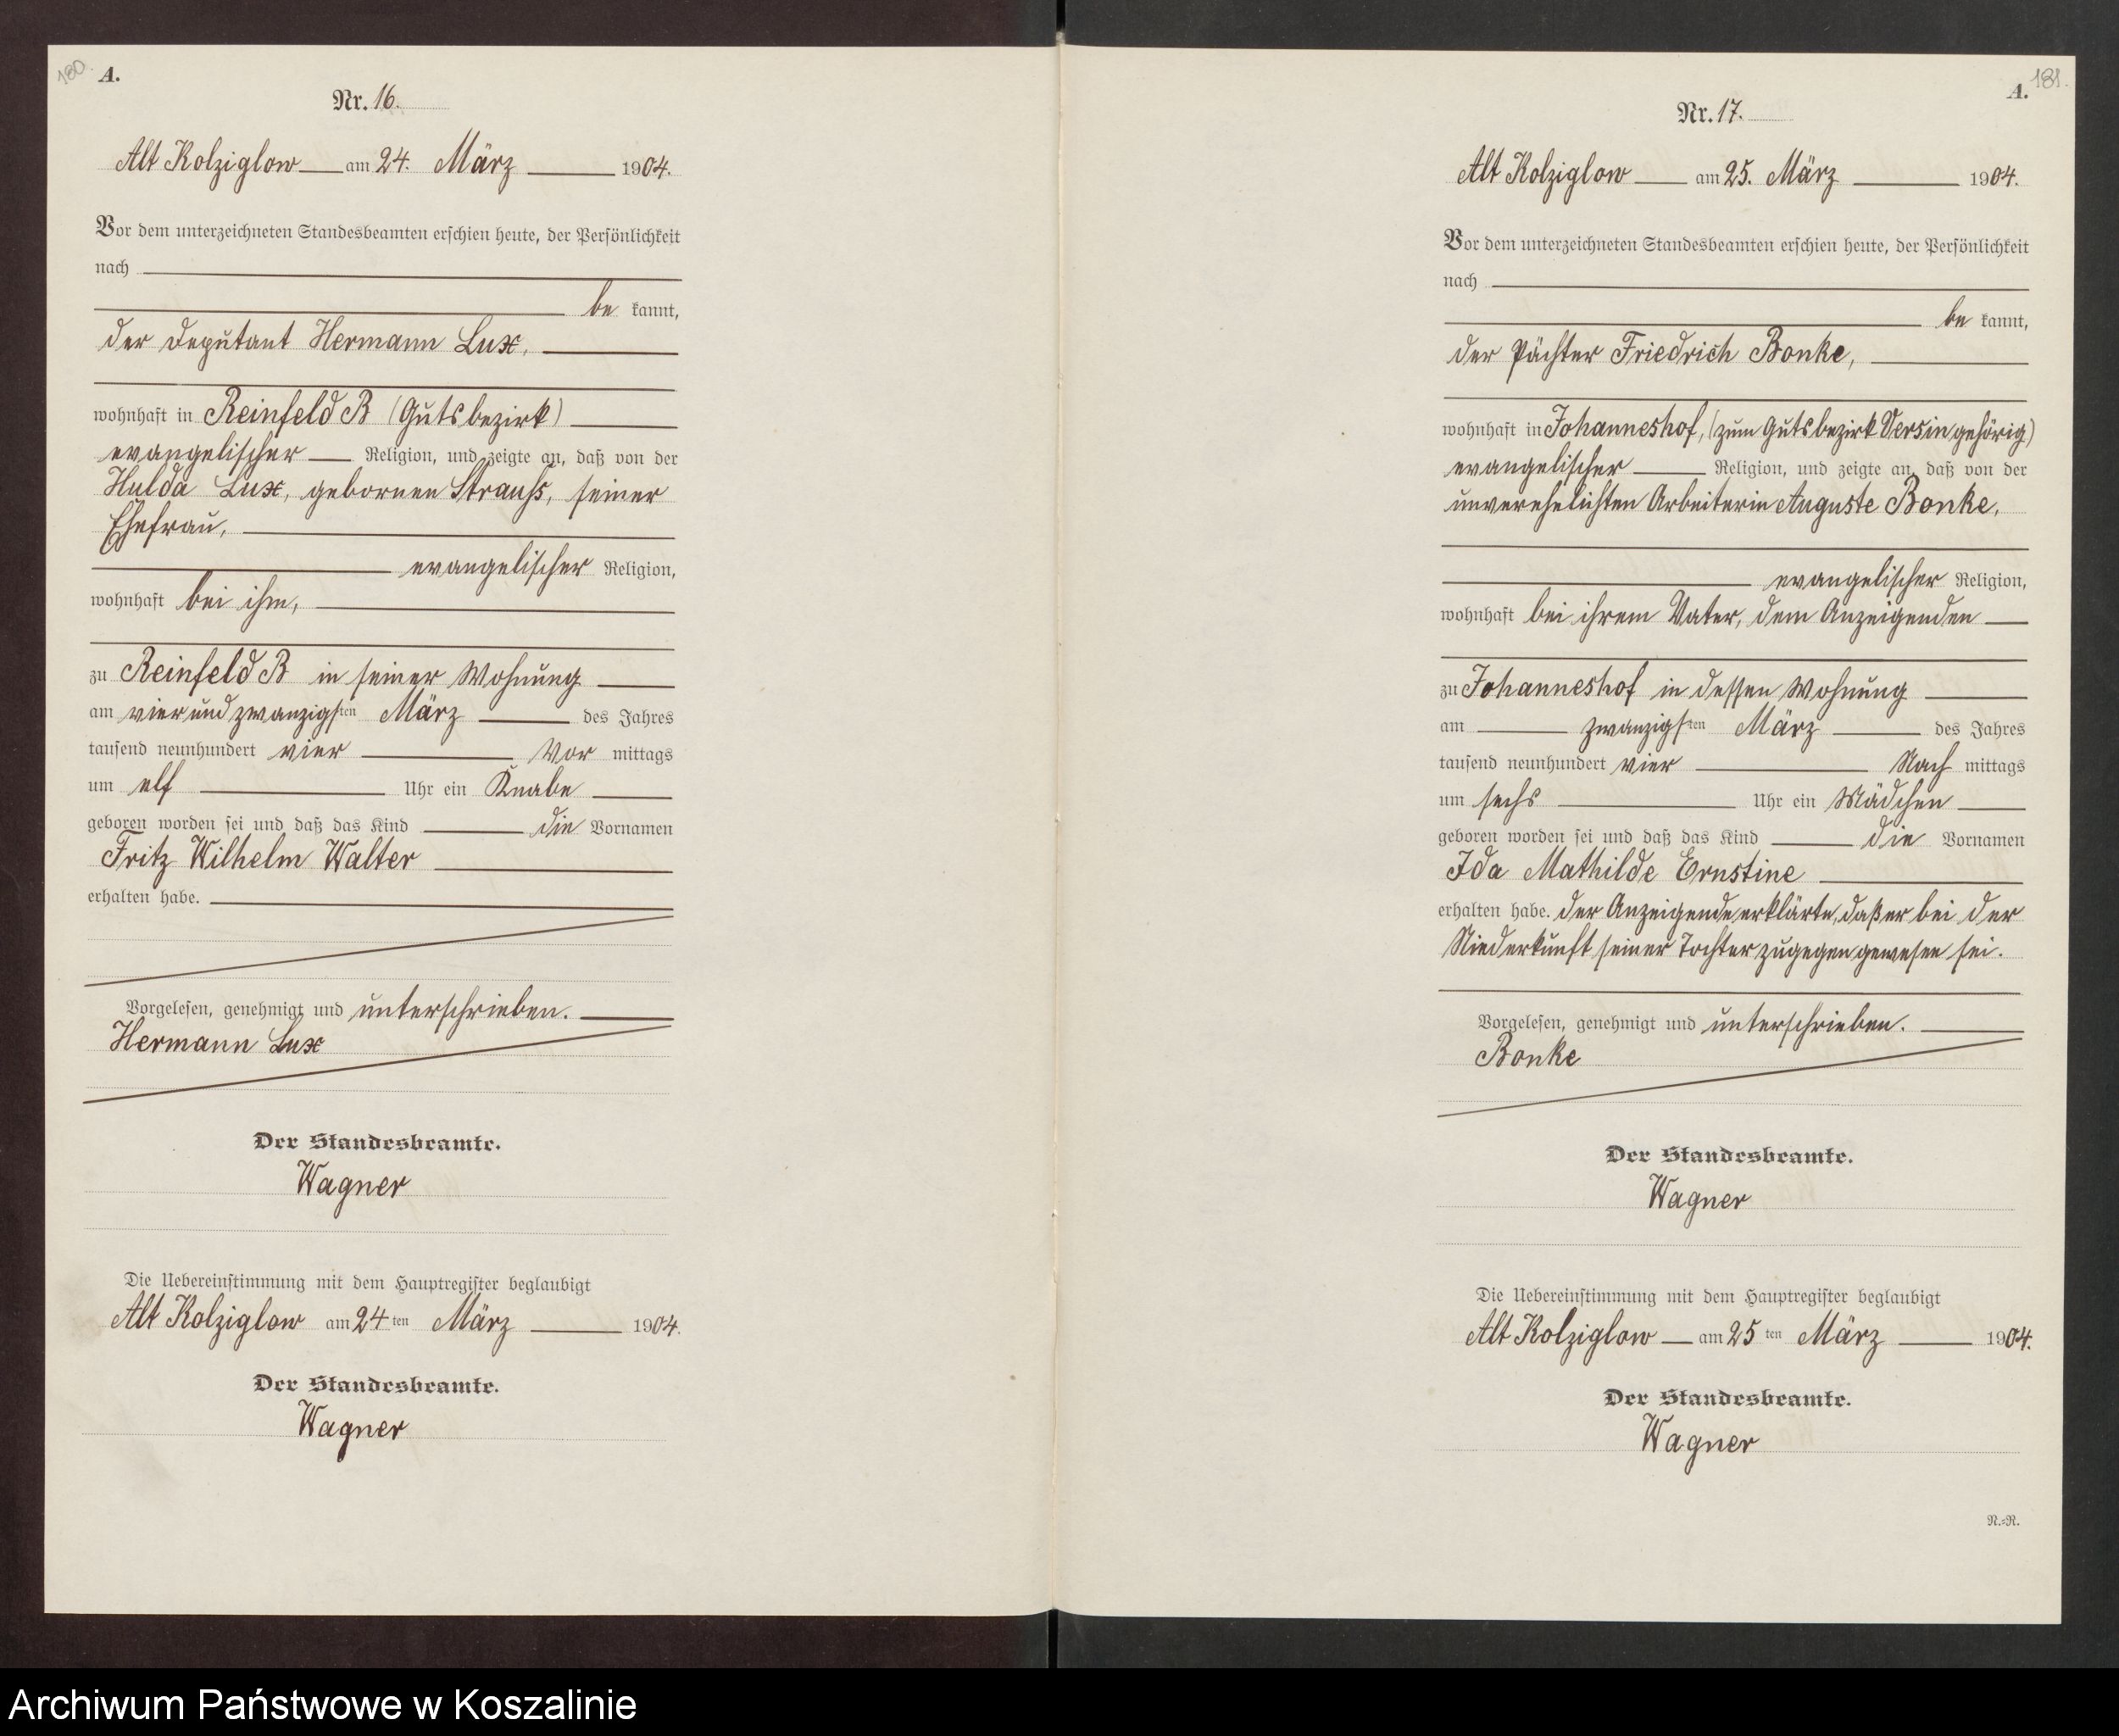 180.
A.
Nr. 16.
Alt Kolziglow am 24. März 1904.
Vor dem unterzeichneten Standesbeamten erschien heute, der Persönlichkeit
nach
be kannt,
der Deputant Hermann Lux,
wohnhaft in Reinfeld B (Gutsbezirk)
evangelischer Religion, und zeigte an, daß von der
Hulda Lux, gebornen Strauß, seiner
Ehefrau,
evangelischer Religion,
wohnhaft bei ihm,
zu Reinfeld B in seiner Wohnung
am vier und zwanzigsten März des Jahres
tausend neunhundert vier Vor mittags
um elf Uhr ein Knabe
geboren worden sei und daß das Kind die Vornamen
Fritz Wilhelm Walter
erhalten habe.
Vorgelesen, genehmigt und unterschrieben.
Hermann Lux
Der Standesbeamte.
Wagner
Die Uebereinstimmung mit dem Hauptregister beglaubigt
Alt Kolziglow am 24 ten März 1904.
Der Standesbeamte.
Wagner
181.
A.
Nr. 17.
Alt Kolziglow am 25. März 1904.
Vor dem unterzeichneten Standesbeamten erschien heute, der Persönlichkeit
nach
be kannt,
der Pächter Friedrich Bonke,
wohnhaft in Johanneshof, (zum Gutsbezirk Versin gehörig)
evangelischer Religion, und zeigte an, daß von der
unverehelichten Arbeiterin Auguste Bonke,
evangelischer Religion,
wohnhaft bei ihrem Vater, dem Anzeigenden
zu Johanneshof in dessen Wohnung
am zwanzigsten März des Jahres
tausend neunhundert vier Nach mittags
um sechs Uhr ein Mädchen
geboren worden sei und daß das Kind die Vornamen
Ida Mathilde Ernstine
erhalten habe. Der Anzeigende erklärte, daß er bei der
Niederkunft seiner Tochter zugegen gewesen sei.
Vorgelesen, genehmigt und unterschrieben.
Bonke
Der Standesbeamte.
Wagner
Die Uebereinstimmung mit dem Hauptregister beglaubigt
Alt Kolziglow am 25 ten März 1904.
Der Standesbeamte.
Wagner
N.-R.
Archiwum Państwowe w Koszalinie